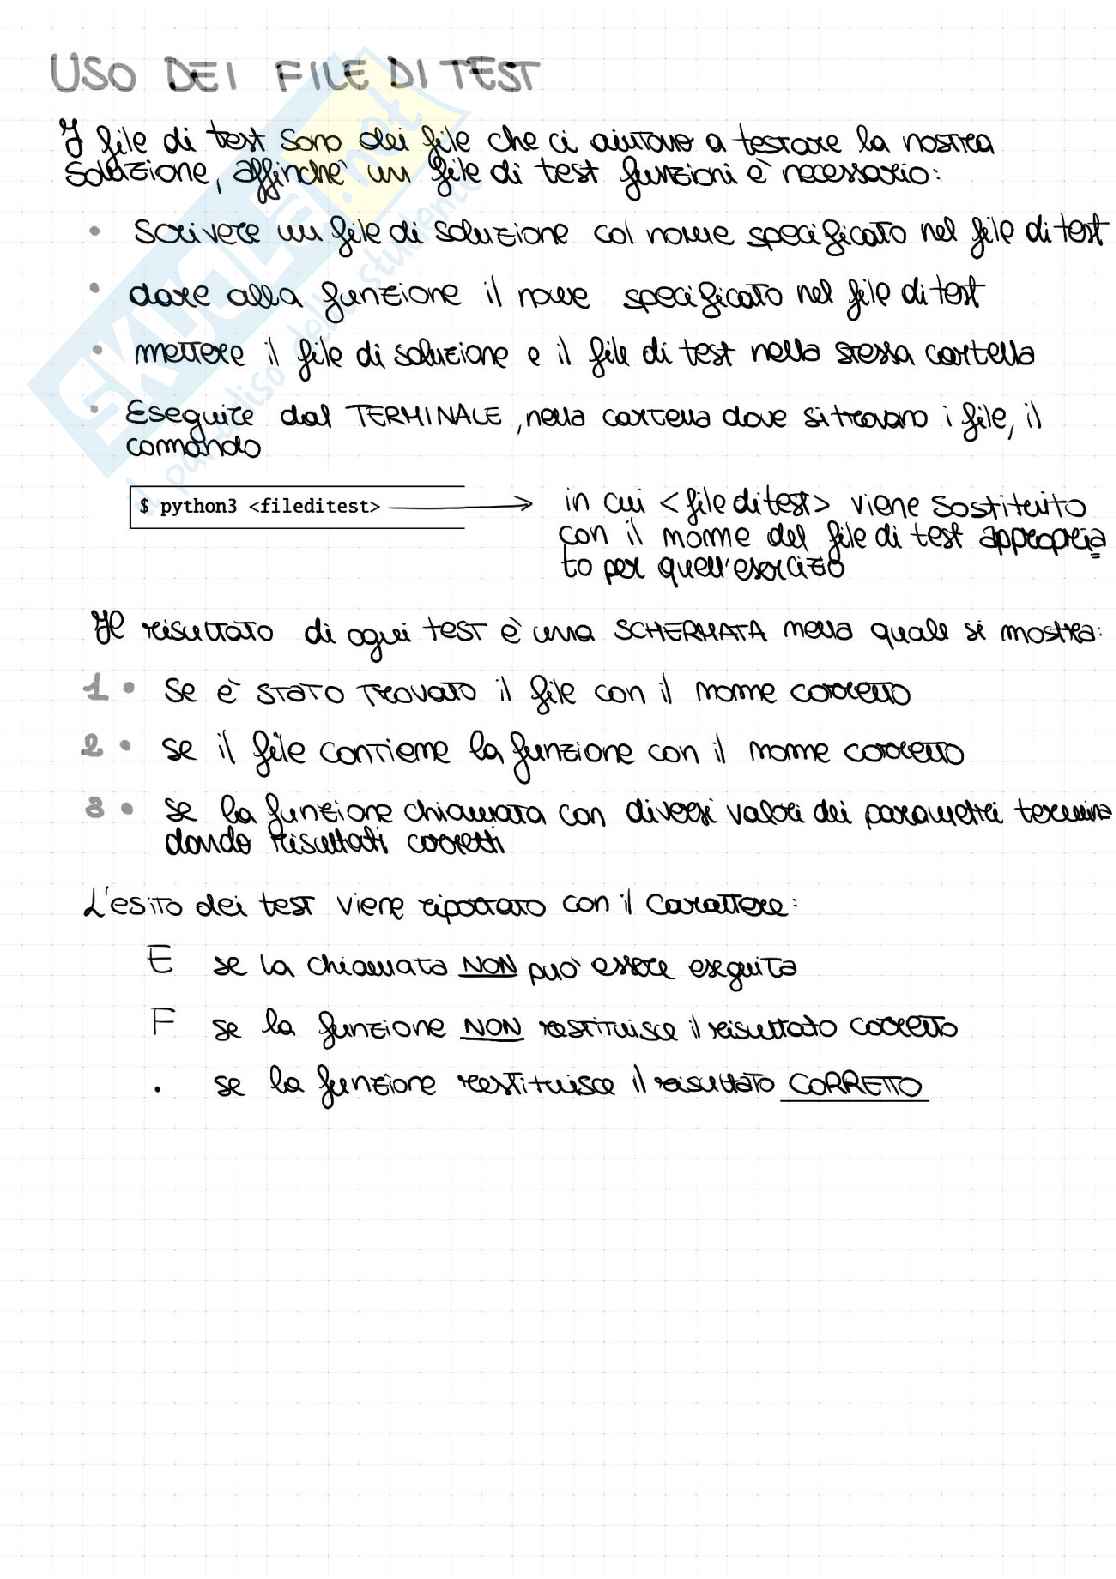 USO DEI FILE DI TEST
I file di test sono dei file che ci aiutano a testare la nostra
soluzione, affinchè un file di test funzioni è necessario:
• scrivere un file di soluzione col nome specificato nel file di test
• dare alla funzione il nome specificato nel file di test
• mettere il file di soluzione e il file di test nella stessa cartella
• Eseguire dal TERMINALE, nella cartella dove si trovano i file, il
comando
$ python3 <fileditest>
in cui <fileditest> viene sostituito
con il nome del file di test appropria
to per quell'esercizio
Il risultato di ogni test è una SCHERMATA nella quale si mostra:
1 • se è stato trovato il file con il nome corretto
2 • se il file contiene la funzione con il nome corretto
3 • se la funzione chiamata con diversi valori dei parametri termina
dando risultati corretti
L'esito dei test viene riportato con il carattere:
E se la chiamata NON può essere eseguita
F se la funzione NON restituisce il risultato corretto
. se la funzione restituisce il risultato CORRETTO
SKUOLA.net
il paradiso dello studente